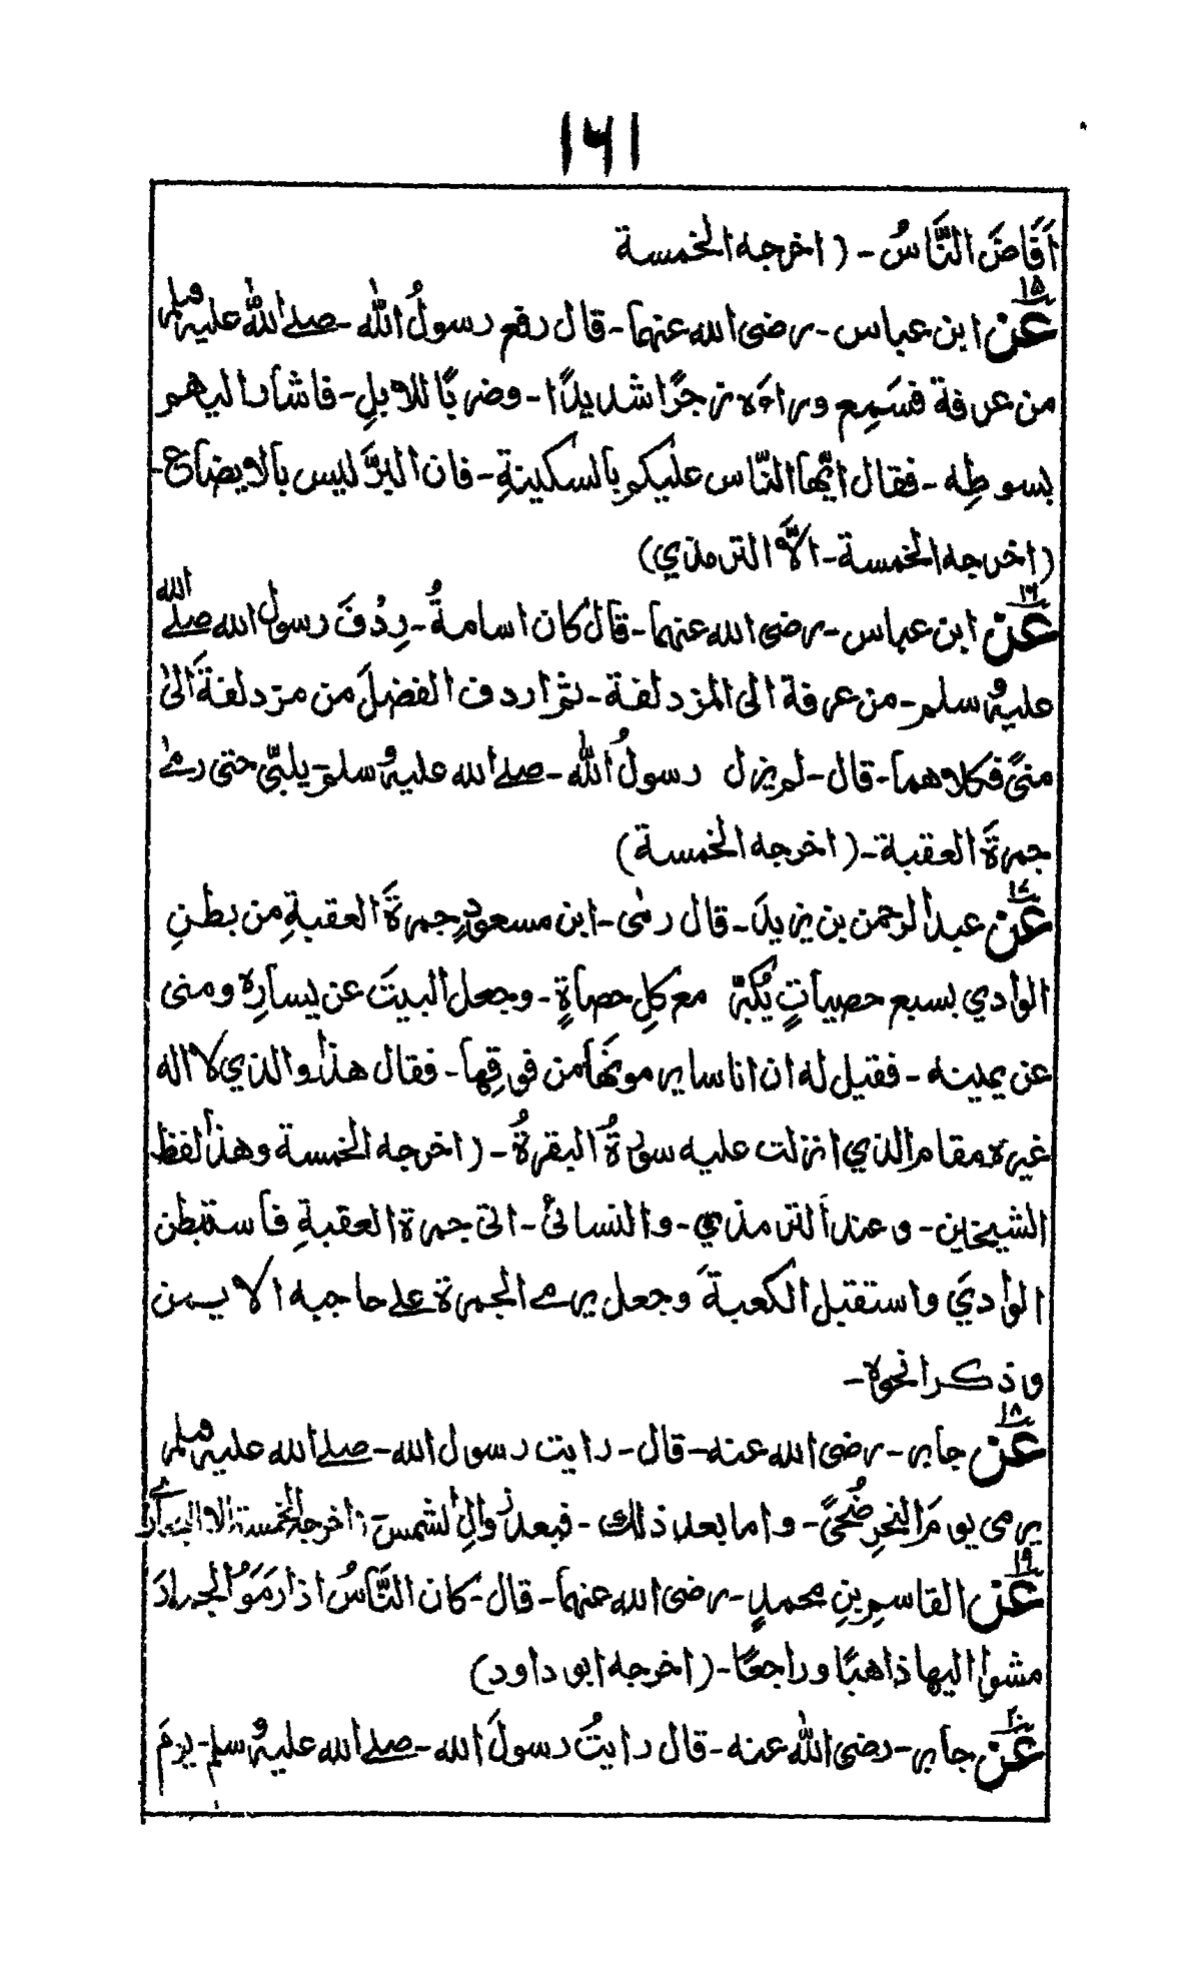 ١٦١
اَفَاضَ النَّاسُ - ( اخرجه الخمسة
١٥
عن ابن عباس - رضی الله عنهما - قال رفع رسولُ الله - صلے الله علیه وسلم
من عرفة فسَمِع وراءَه زجرًا شديدًا - وضربًا للابلِ - فاشار اليهم
بسوطِه - فقال ايّها النّاس عليكم بالسكينةِ - فان البرَّ ليس بالايضاع -
( اخرجه الخمسة - الّا الترمذي )
١٦
عن ابن عباس - رضی الله عنهما - قال كان اسامةُ - رِدُفَ رسول الله صلے الله
عليه وسلم - من عرفة الى المزدلفة - ثم اردف الفضلَ من مزدلفةَ الیٰ
منًى فكلاهما - قال - لم يزل رسولُ الله - صلے الله عليه وسلم - يلبّي حتى رمےٰ
جمرةَ العقبة - ( اخرجه الخمسة )
١٧
عن عبد الرحمن بن يزيدَ - قال رمٰی - ابن مسعودٍ جمرةَ العقبةِ من بطنِ
الوادي بسبع حصياتٍ يُكبّر مع كلِ حصاةٍ - وجعل البيتَ عن يسارِه ومنى
عن يمينه - فقيل له ان اناسا يرمونَها من فوقِها - فقال هذا والذي لا اله
غيره مقام الذي انزلت عليه سورةُ البقرةُ - ( اخرجه الخمسة وهذا لفظ
الشيخين - وعند الترمذي - والنسائی - اتی جمرة العقبةِ فاستبطن
الوادي واستقبل الكعبةَ وجعل يرمے الجمرة علے حاجبه الايمن
وذكرا نحوه -
١٨
عن جابر - رضی الله عنه - قال - رايت رسول الله - صلے الله عليه وسلم
يرمى يومَ النحرِ ضُحًى - واما بعد ذلك - فبعد زوالِ الشمس - اخرجه الخمسة الا
١٩
عن القاسمِ بنِ محمدٍ - رضی الله عنهما - قال - كان النَّاسُ اذا رَمَوُا الجمارَ
مشوا اليها ذاهبًا وراجعًا - ( اخرجه ابو داود )
٢٠
عن جابر - رضی الله عنه - قال رايتُ رسولَ الله - صلے الله عليه وسلم - يرمِ